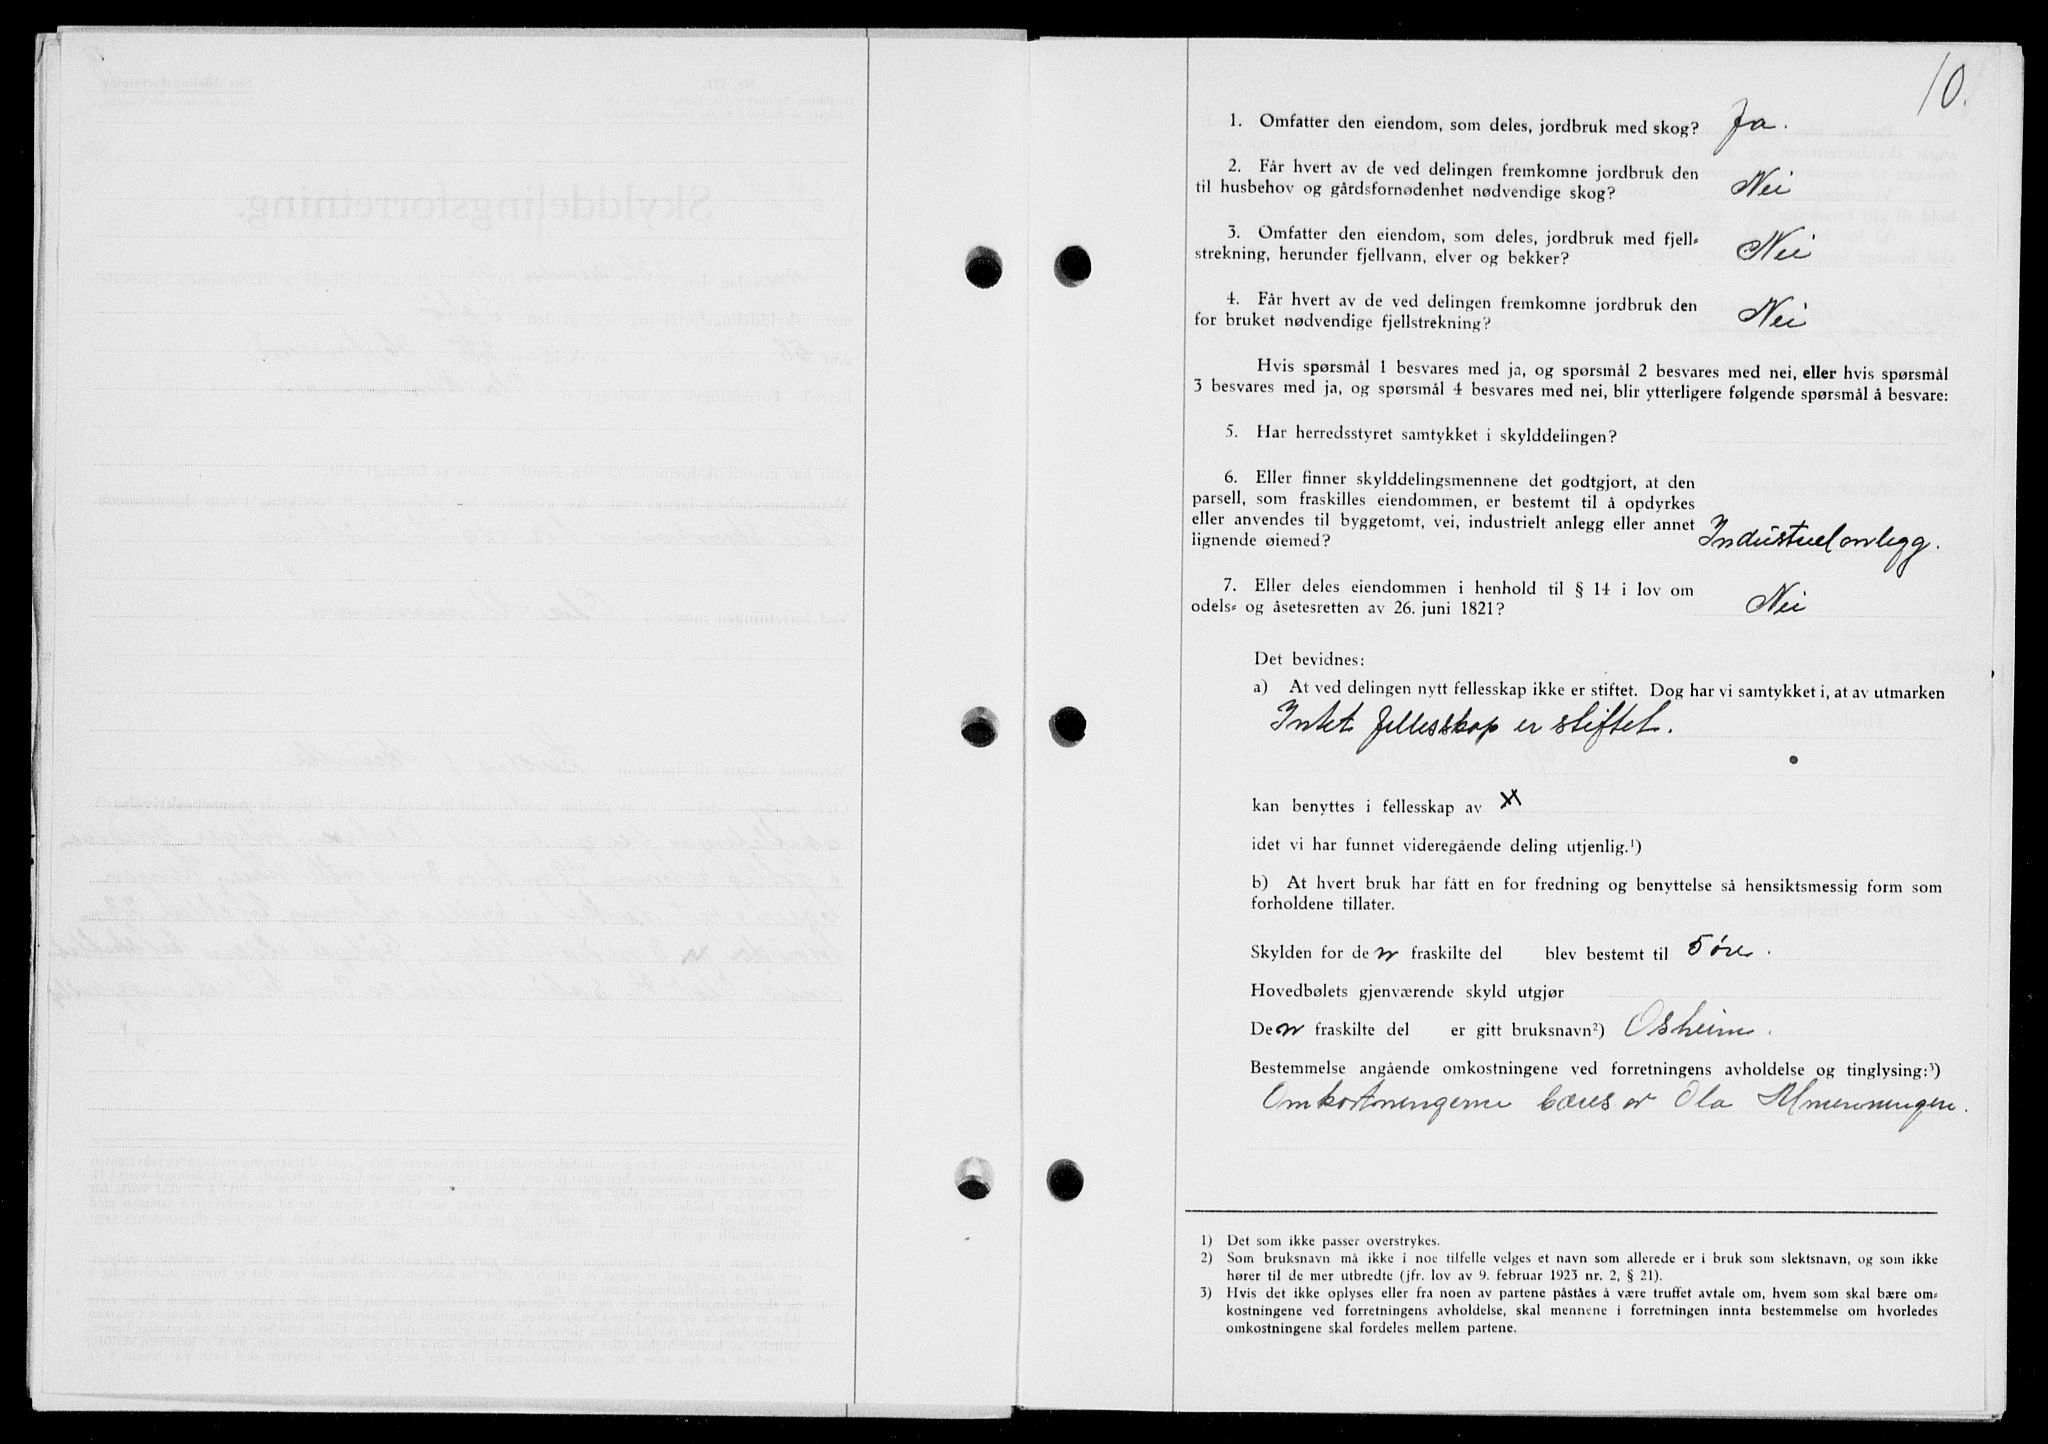 10.
1. Omfatter den eiendom, som deles, jordbruk med skog? Ja.
2. Får hvert av de ved delingen fremkomne jordbruk den
til husbehov og gårdsfornødenhet nødvendige skog? Nei
3. Omfatter den eiendom, som deles, jordbruk med fjell=
strekning, herunder fjellvann, elver og bekker? Nei
4. Får hvert av de ved delingen fremkomne jordbruk den
for bruket nødvendige fjellstrekning? Nei
Hvis spørsmål 1 besvares med ja, og spørsmål 2 besvares med nei, eller hvis spørsmål
3 besvares med ja, og spørsmål 4 besvares med nei, blir ytterligere følgende spørsmål å besvare:
5. Har herredsstyret samtykket i skylddelingen?
6. Eller finner skylddelingsmennene det godtgjort, at den
parsell, som fraskilles eiendommen, er bestemt til å opdyrkes
eller anvendes til byggetomt, vei, industrielt anlegg eller annet
lignende øiemed? Industrielanlegg.
7. Eller deles eiendommen i henhold til § 14 i lov om
odels= og åsetesretten av 26. juni 1821? Nei
Det bevidnes:
a) At ved delingen nytt fellesskap ikke er stiftet. Dog har vi samtykket i, at av utmarken
Intet fellesskap er stiftet.
kan benyttes i fellesskap av
idet vi har funnet videregående deling utjenlig.¹)
b) At hvert bruk har fått en for fredning og benyttelse så hensiktsmessig form som
forholdene tillater.
Skylden for den fraskilte del blev bestemt til 5 øre.
Hovedbølets gjenværende skyld utgjør
Den fraskilte del er gitt bruksnavn²) Osheim.
Bestemmelse angående omkostningene ved forretningens avholdelse og tinglysing:³)
Omkostningerne bæres av Ola Almenningen.
1) Det som ikke passer overstrykes.
2) Som bruksnavn må ikke i noe tilfelle velges et navn som allerede er i bruk som slektsnavn, og som ikke
hører til de mer utbredte (jfr. lov av 9. februar 1923 nr. 2, § 21).
3) Hvis det ikke oplyses eller fra noen av partene påståes å være truffet avtale om, hvem som skal bære om=
kostningene ved forretningens avholdelse, skal mennene i forretningen innta bestemmelse om hvorledes
omkostningene skal fordeles mellem partene.